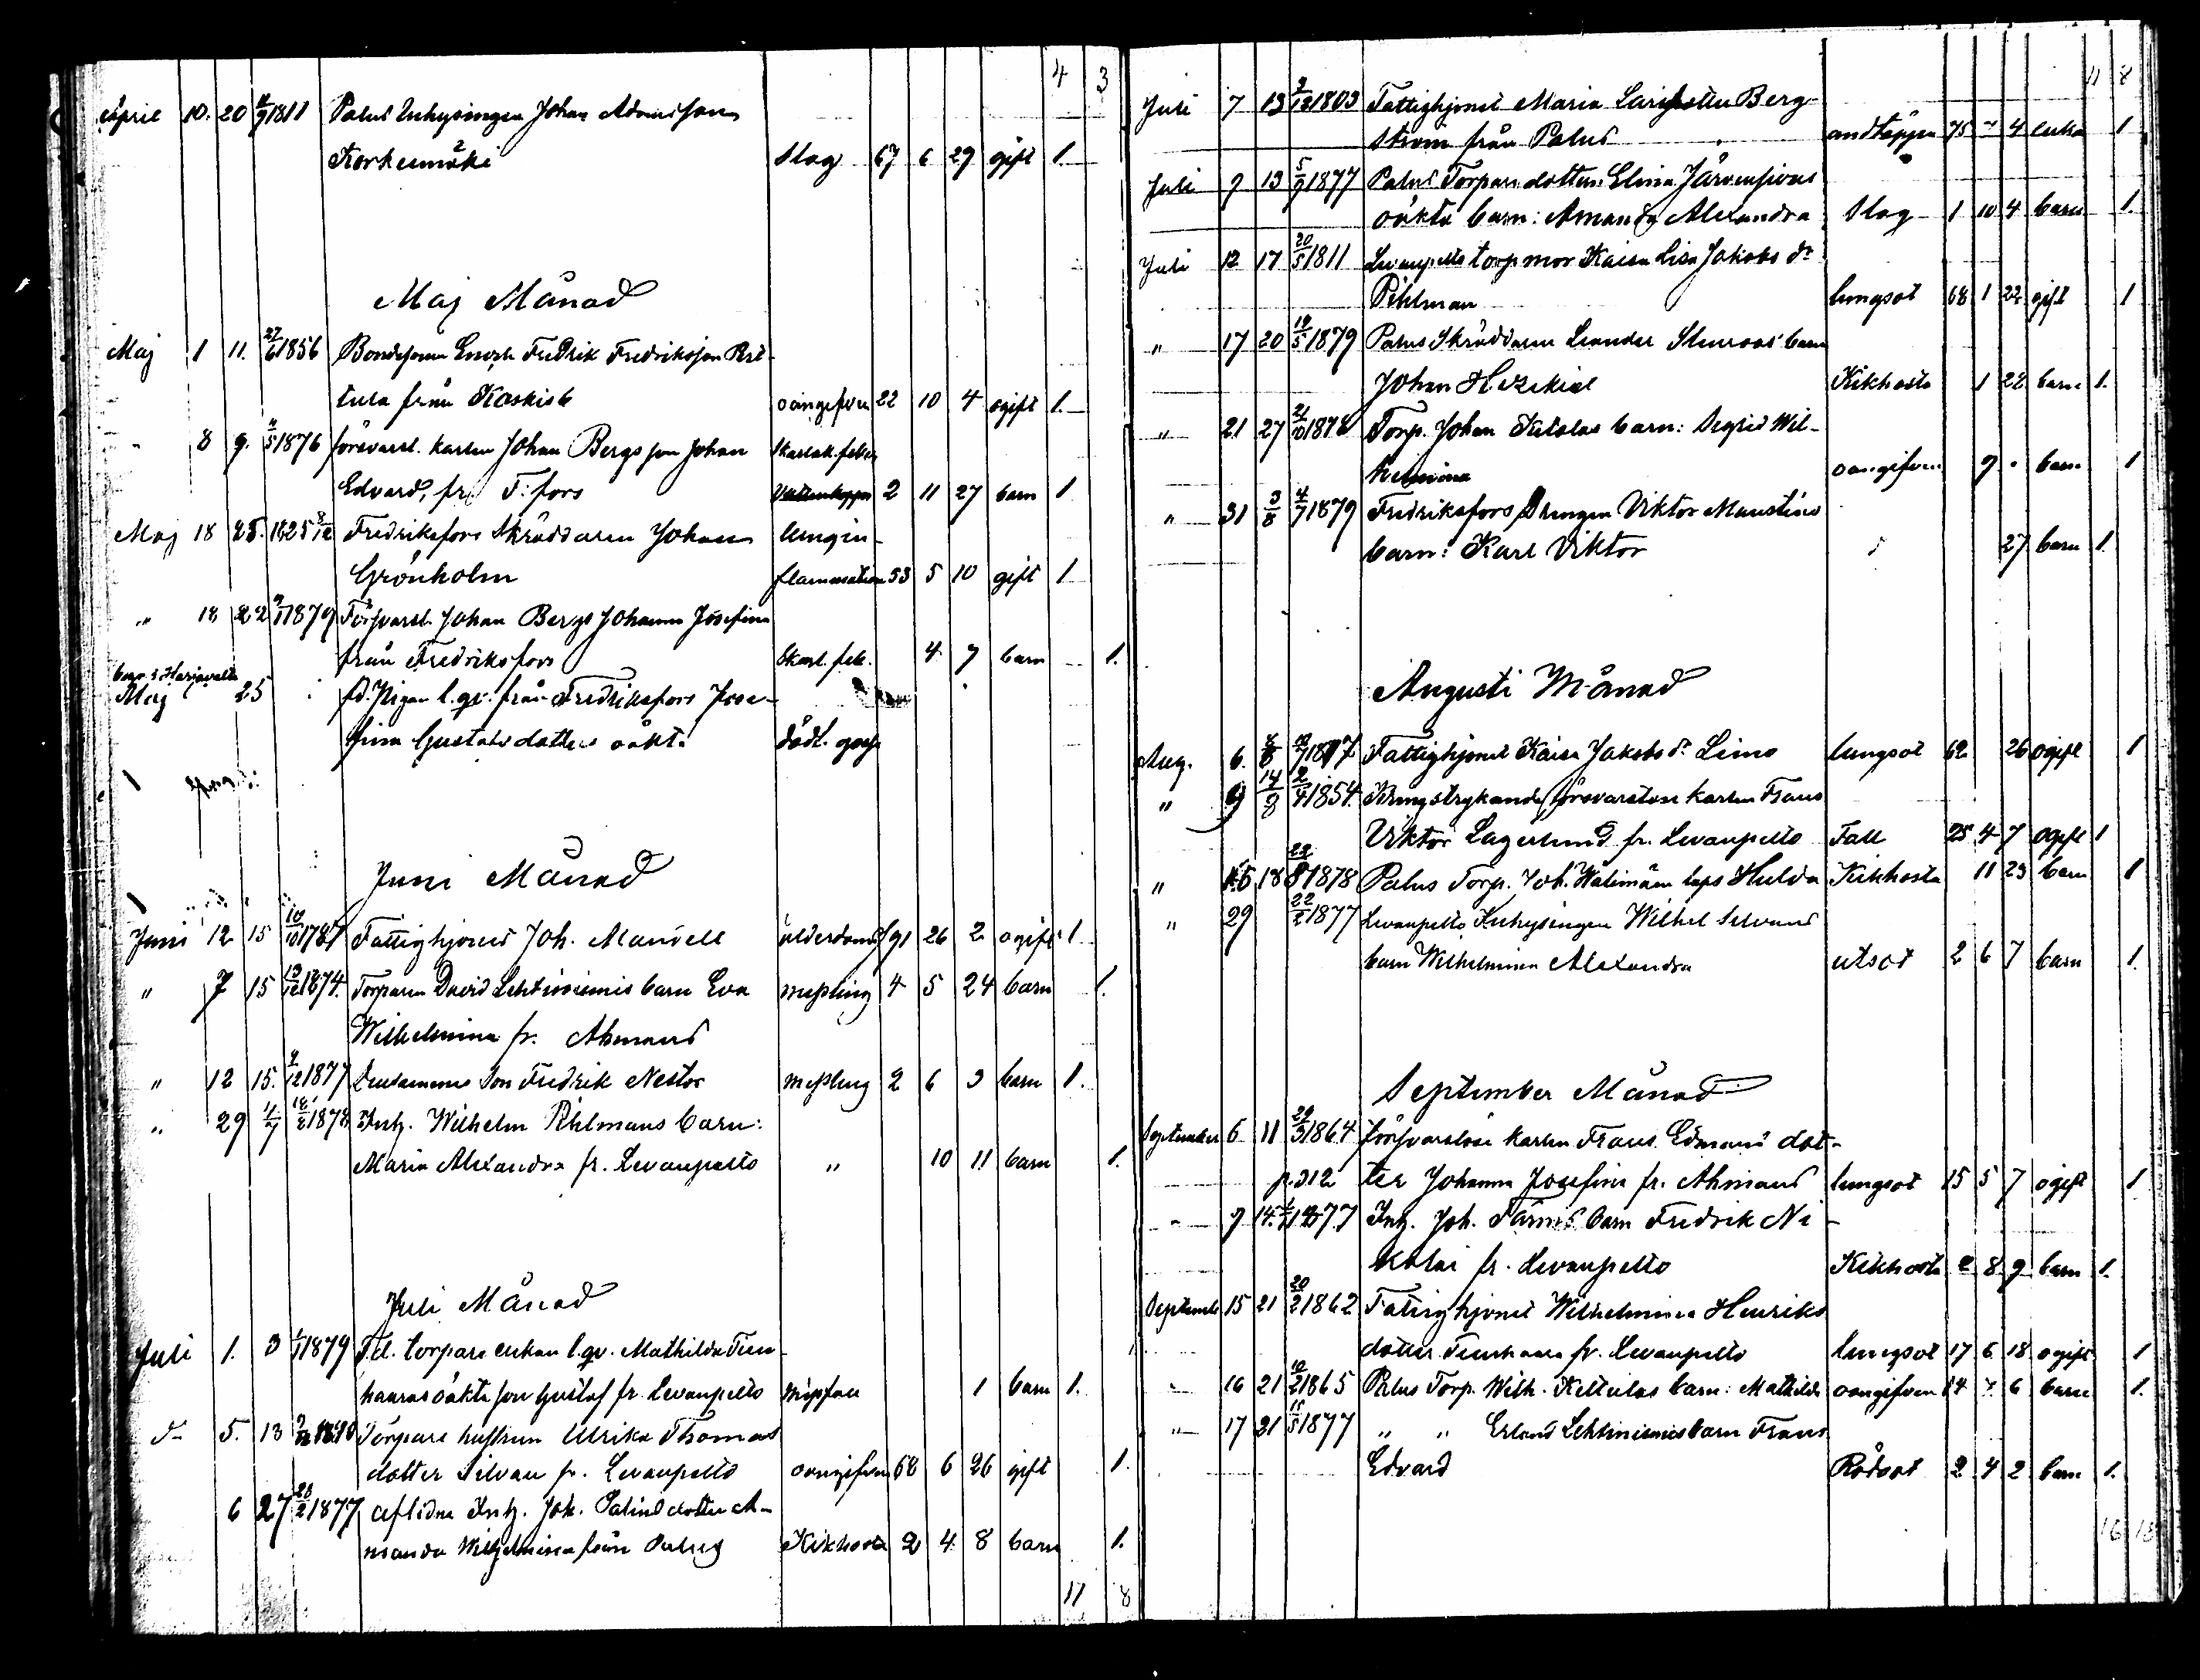 4 3
April 10. 20 11/9 1811 Palus Inhysingen Johan Adamsson
Korkeumäki Slag 67 6 29 gift 1.
Maj Månad
Maj 1 11. 27/6 1856 Bondesonen Fredrik Fredriksson Pert-
tula från Kaskis oangifven 22 10 4 ogift 1.
8 9. 4/5 1876 försvarsl. karlen Johan Bergs son Johan Skarlak.feber
Edvard, fr. F:fors 2 11 27 barn 1
Maj 18 25. 1825 8/12 Fredriksfors Skräddaren Johan lungin-
Grönholm flammation 53 5 10 gift 1
" 18 22 9/1 1879 Försvarsl. Johan Bergs Johanna Josefina
från Fredriksfors Skarl. feb. 4 7 barn 1.
begr. i Harjavalta
Maj 25 fd. Pigan l. qv. från Fredriksfors Jose-
fina Gustafsdotters oäkt. dödf. gosse
Juni Månad
Juni 12 15 10/10 1787 Fattighjonet Joh. Mandell ålderdoms 91 26 2 ogift 1
" 7 15 13/12 1874. Torparen David Lehtiniemis barn Eva messling 4 5 24 barn 1.
Wilhelmina fr. Ahmaus
" 12 15. 9/12 1877 Densammes Son Fredrik Nestor messling 2 6 3 barn 1.
" 29 4/7 18/8 1878 Inh. Wilhelm Pihlmans barn:
Maria Alexandra fr. Levanpelto " 10 11 barn 1.
Juli Månad
Juli 1. 3 1/7 1879 F.d. torpare enkan l. qv. Mathilda Tien-
haaras oäkta son Gustaf fr. Levanpelto 1 barn 1.
d:o 5. 13 Torpare hustrun Ulrika Thomas
dotter Silvan fr. Levanpelto oangifven 68 6 26 gift 1.
6 27 28/2 1877 aflidne Inh. Joh. Salins dotter A-
manda Wilhelmina från Palus Kikhosta 2 4 8 barn 1.
11 8
11 8
Juli 7 13 3/12 1803 Fattighjonet Maria Larsdotter Berg-
ström från Palus andtäppa 75 7 4 enka 1
Juli 9 13 5/9 1877 Palus Torpare dottern Elina Järvensivus
oäkta barn: Amanda Alexandra Slag 1 10 4 barn 1.
Juli 12 17 20/5 1811 Levanpelto torp mor Kaisa Lisa Jakobs dr
Pihlman lungsot 68 1 22 gift 1
" 17 20 19/5 1879 Palus Skräddaren Leander Stenroos barn
Johan Hezekiel Kikhosta 1 22 barn 1.
" 21 27 21/10 1878 Torp. Johan Kitolas barn: Sigrid Wil-
helmina oangifven 9 - barn 1
" 31 3/8 4/7 1879 Fredriksfors Drengen Viktor Maustins
barn: Karl Viktor d 27 barn 1.
Augusti Månad
Aug. 6. 8/8 1817 Fattighjonet Kaisa Jakobs dr Leino lungsot 62 26 ogift 1
" 9 14/8 2/4 1854. Kringstrykande försvarslöse karlen Frans
Viktor Lagerlund fr. Levanpelto Fall 25 4 7 ogift 1
" 15 18 22/8 1878 Palus Torp. Joh. Hulda Kikhosta 11 23 barn 1
" 29 22/2 1877 Levanpelto Inhysingen Wilhel Silvans
barn Wilhelmina Alexandra utsot 2 6 7 barn 1.
September Månad
September 6 11 29/3 1864 försvarslöse karlen Frans Edmans dot-
p.312 ter Johanna Josefina fr. Ahmaus lungsot 15 5 7 ogift 1
" 9 14. 1/1 1877 Inh. Joh. barn Fredrik Ni-
kolai fr. Levanpelto Kikhosta 2 8 9 barn 1.
September 15 21 20/2 1862 Fattighjonet Wilhelmina Henriks
dotter Tienhaara fr. Levanpelto lungsot 17 6 18 ogift 1
" 16 21 10/2 1865 Palus Torp. Wilh. Kittulas barn: Mathilda oangifven 14 7 6 barn 1.
" 17 21 15/5 1877 " " Erland Lehtiniemis barn Frans
Edvard Rödsot 2 4 2 barn 1.
16 13